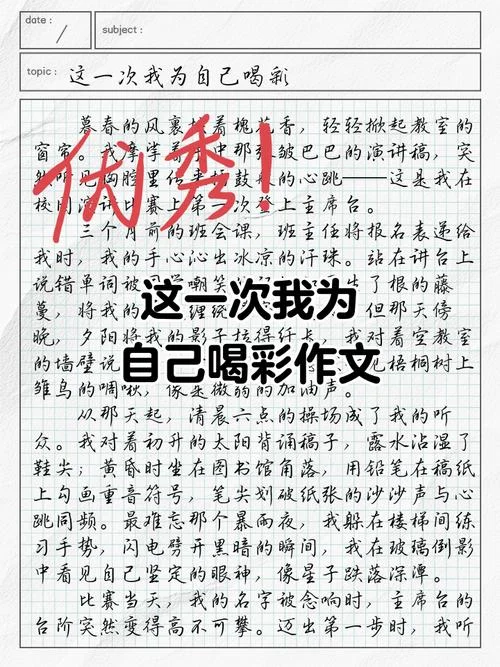 date :
subject :
topic : 这一次我为自己喝彩
暮春的风裹挟着槐花香，轻轻掀起教室的
窗帘。我摩挲着手中那张皱巴巴的演讲稿，突
然听见胸腔里传来擂鼓般的心跳——这是我在
校园演讲比赛上第一次登上主席台。
优秀！
三个月前的班会课，班主任将报名表递给
我时，我的手心沁出冰凉的汗珠。站在讲台上
说错单词被同学嘲笑的
了根的藤
蔓，将我的
缠绕
但那天傍
晚，夕阳将我的影子拉得纤长，我对着空教室
的墙壁说
见梧桐树上
雏鸟的啁啾，像是微弱的加油声。
这一次我为
自己喝彩作文
从那天起，清晨六点的操场成了我的听
众。我对着初升的太阳背诵稿子，露水沾湿了
鞋尖；黄昏时坐在图书馆角落，用铅笔在稿纸
上勾画重音符号，笔尖划破纸张的沙沙声与心
跳同频。最难忘那个暴雨夜，我躲在楼梯间练
习手势，闪电劈开黑暗的瞬间，我在玻璃倒影
中看见自己坚定的眼神，像星子跌落深潭。
比赛当天，我的名字被念响时，主席台的
台阶突然变得高不可攀。迈出第一步时，我听